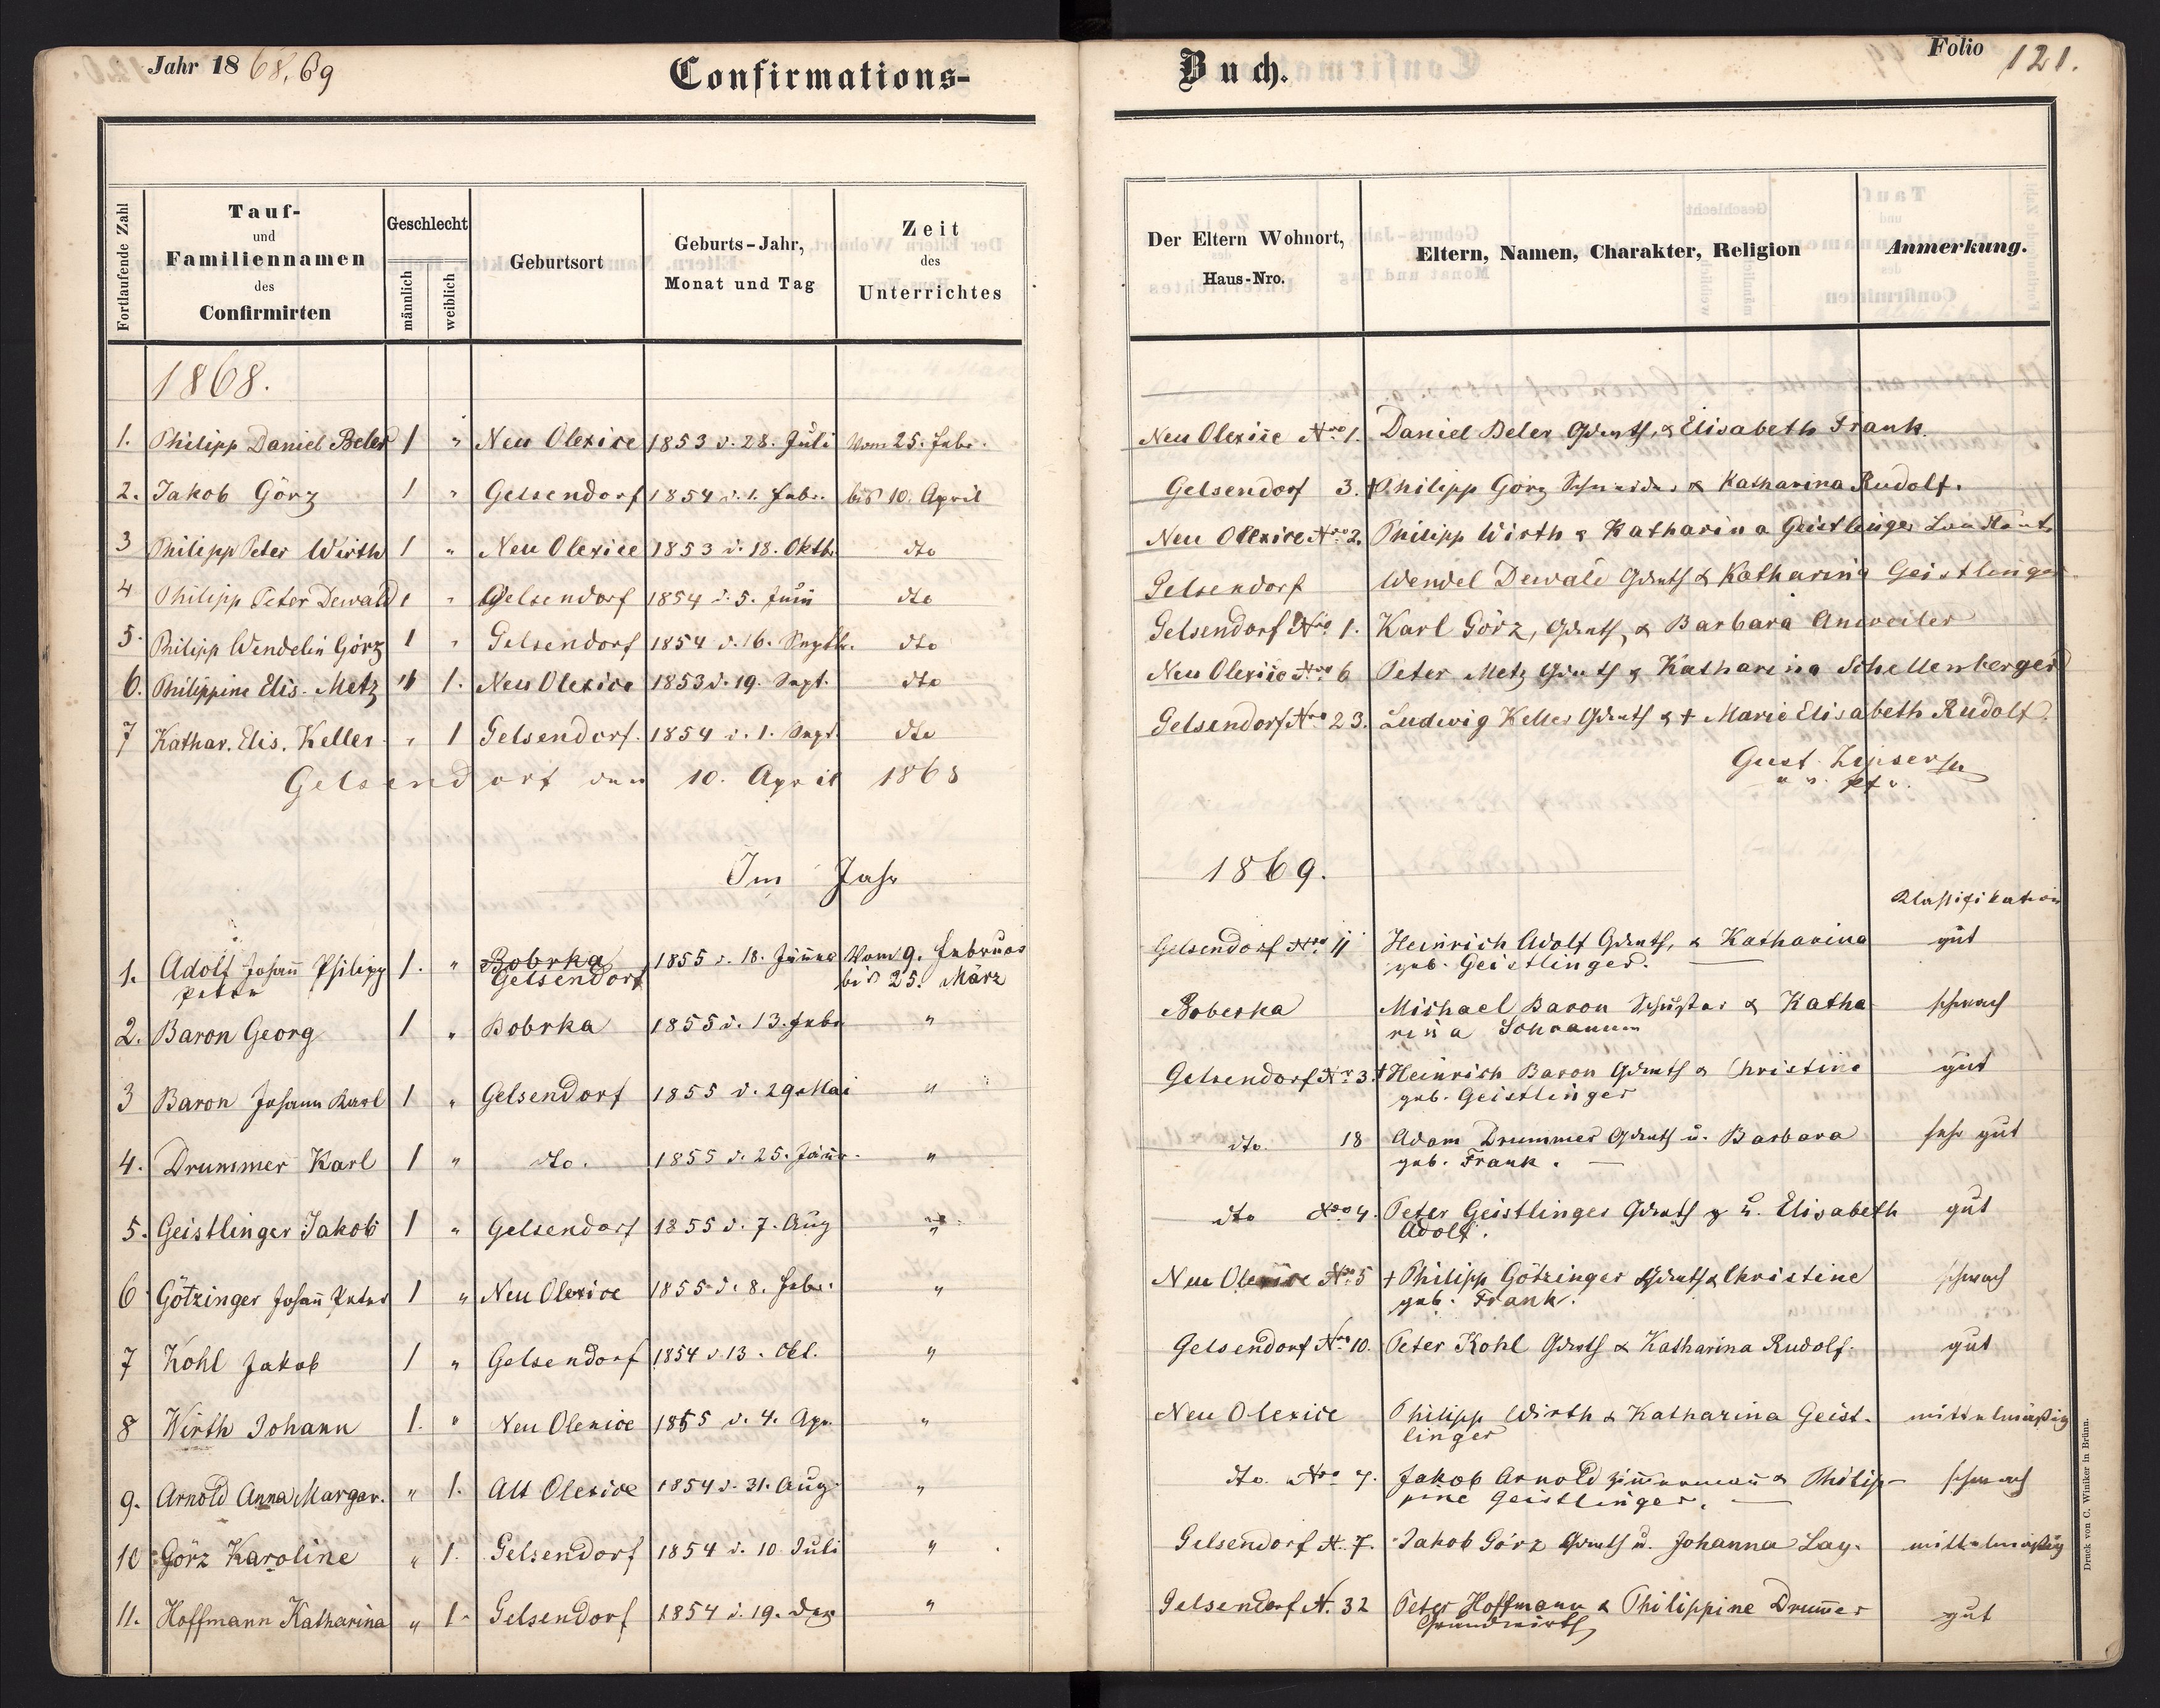 Jahr 18 68, 69
Confirmations-
Buch.
Folio 121.
Fortlaufende Zahl
Tauf-
und
Familiennamen
des
Confirmirten
Geschlecht
männlich
weiblich
Geburtsort
Geburts-Jahr,
Monat und Tag
Zeit
des
Unterrichtes
Der Eltern Wohnort,
Haus-Nro.
Eltern, Namen, Charakter, Religion
Anmerkung.
1868.
1. Philipp Daniel Beler 1 " Neu Olexice 1853 d. 28. Juli Vom 25. Febr. Neu Olexice Nro 1. Daniel Beler Gdwth, & Elisabeth Frank.
2. Jakob Görz 1 " Gelsendorf 1854 d. 1. Febr. bis 10. April Gelsendorf 3. † Philipp Görz Schneider & Katharina Rudolf.
3 Philipp Peter Wirth 1 " Neu Olexice 1853 d. 18. Oktb. dto Neu Olexice Nro 2. Philipp Wirth & Katharina Geistlinger
4 Philipp Peter Dewald 1 " Gelsendorf 1854 d. 5. Juni dto Gelsendorf Wendel Dewald Gdwth & Katharina Geistlinger
5. Philipp Wendelin Görz 1 " Gelsendorf 1854 d. 16. Septbr. dto Gelsendorf Nro 1. Karl Görz, Gdwth, & Barbara Anweiler
6. Philippine Elis. Metz " 1. Neu Olexice 1853 d. 19. Sept. dto Neu Olexice Nro 6 Peter Metz Gdwth & Katharina Schellenberger
7 Kathar. Elis. Keller " 1 Gelsendorf. 1854 d. 1. Sept. dto Gelsendorf Nro 23. Ludwig Keller Gdwth & † Marie Elisabeth Rudolf.
Gelsendorf den 10. April 1868
Gust. Zipser
Im Jahr 1869.
Klassifikation
1. Adolf Johann Philipp 1. " Bobrka 1855 d. 18. Jänner Vom 9. Februar Gelsendorf Nro 11 Heinrich Adolf Gdwth, & Katharina gut
Peter Gelsendorf bis 25. März geb. Geistlinger.
2. Baron Georg 1 " Bobrka 1855 d. 13. Febr. " Boberka Michael Baron Schuster & Katha schwach
rina Schramm
3 Baron Johann Karl 1 " Gelsendorf 1855 d. 29. Mai " Gelsendorf Nr. 3. † Heinrich Baron Gdwth & Christine gut
geb. Geistlinger
4. Drummer Karl 1 " dto. 1855 d. 25. Jänr. " dto. 18 Adam Drummer Gdwth u. Barbara sehr gut
geb. Frank.
5. Geistlinger Jakob 1 " Gelsendorf 1855 d. 7. Aug " dto Nro 4. Peter Geistlinger Gdwth u. Elisabeth gut
Adolf.
6 Götzinger Johann Peter 1 " Neu Olexice 1855 d. 8. Febr. " Neu Olexice Nro 5 † Philipp Götzinger Gdwth & Christine schwach
geb. Frank.
7 Kohl Jakob 1 " Gelsendorf 1854 d. 13. Okt. " Gelsendorf Nro 10. Peter Kohl Gdwth & Katharina Rudolf. gut
8 Wirth Johann 1. " Neu Olexice 1855 d. 4. Apr. " Neu Olexice Philipp Wirth & Katharina Geist- mittelmäßig
linger
9. Arnold Anna Margar. " 1. Alt Olexice 1854 d. 31. Aug. " dto. Nro 7. Jakob Arnold Zimmermann & Philip- schwach
pine Geistlinger.
10 Görz Karoline " 1. Gelsendorf 1854 d. 10 Juli " Gelsendorf N. 7. Jakob Görz Gdwth u. Johanna Lay. mittelmäßig
11. Hoffmann Katharina " 1. Gelsendorf 1854 d. 19. Dez " Gelsendorf N. 32 Peter Hoffmann & Philippine Drummer gut
Grundwirth
Druck von C. Winiker in Brünn.